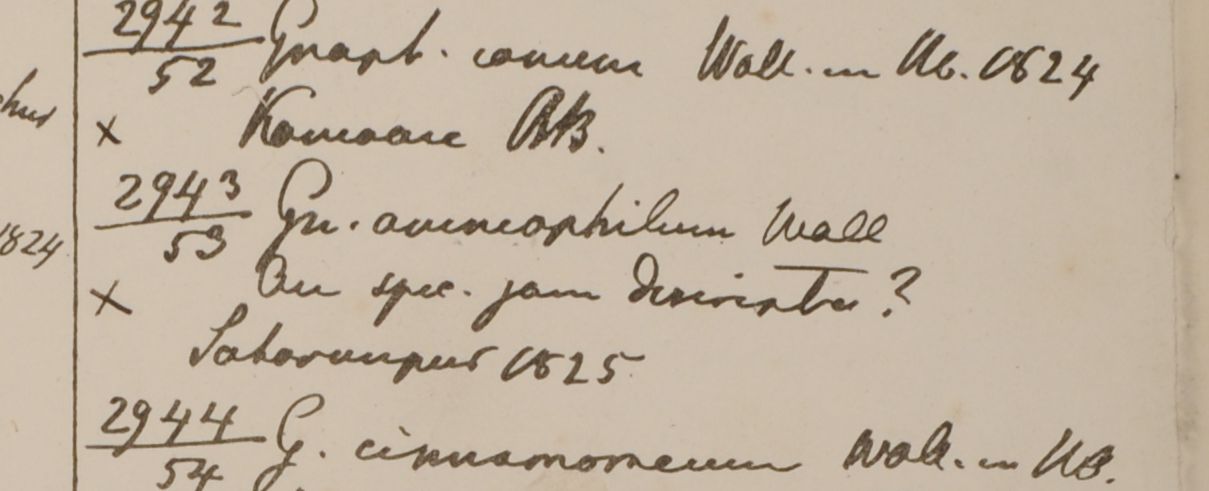 2942
52 Gnaph. canum Wall. in Hb. 1824
x Kamaon RB.
2943
53 Gn. ammophilum Wall
x An spec. jam descripta?
Saharunpur 1825
2944
54 G. cinnamomeum Wall. in HB.
1824